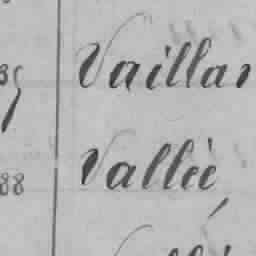 Vaillan
88 Vallée,